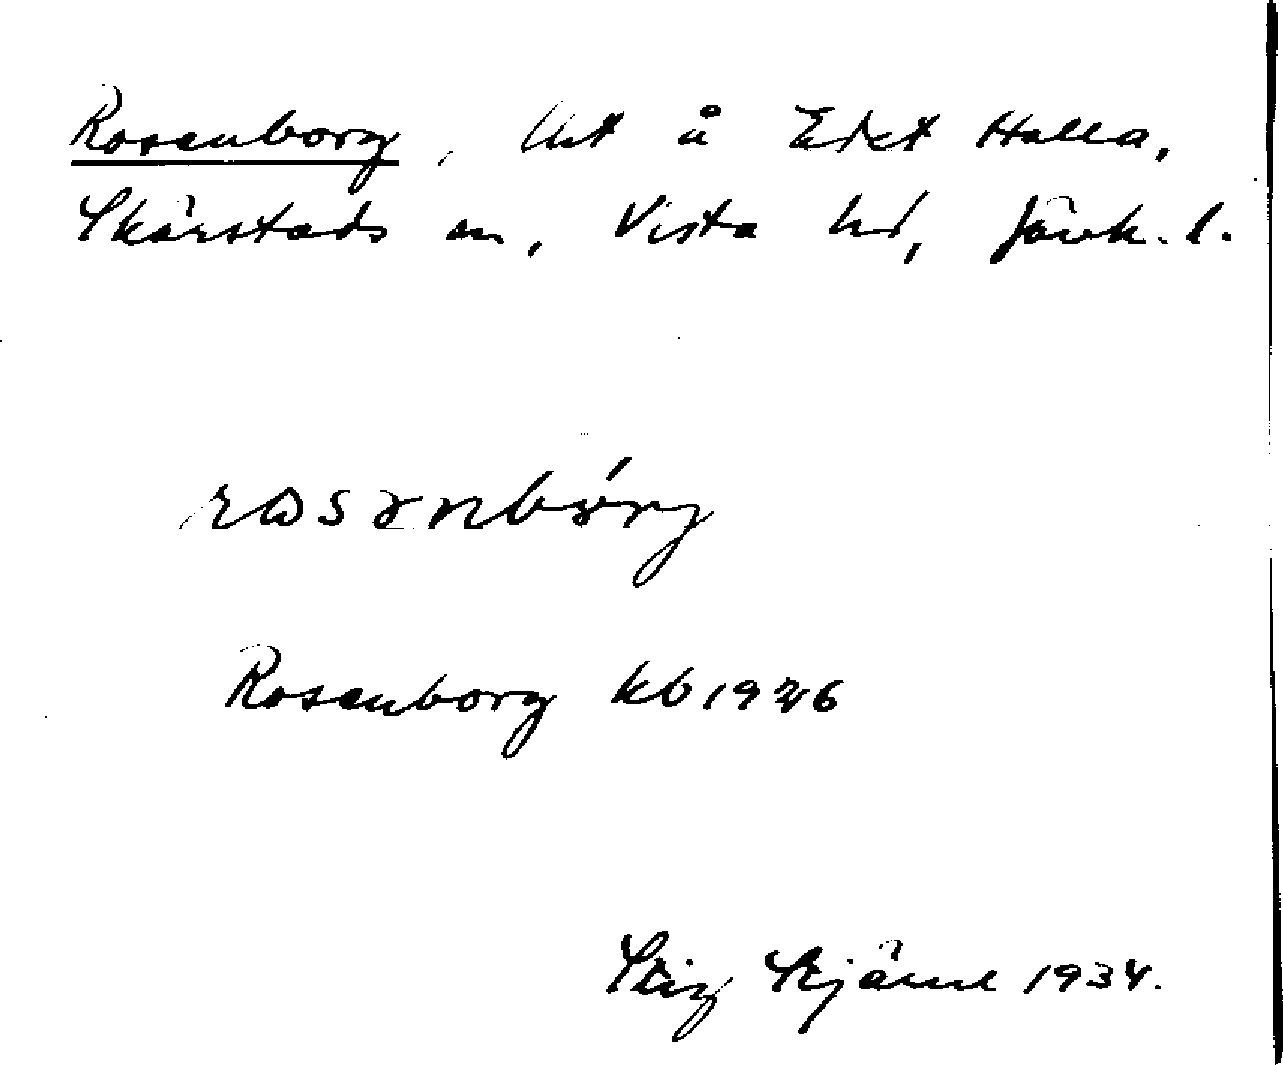 Rosenborg, Ust å Ekt Halla,
Skärstads sn, Vista hd, Jönk. l.
rosənbórj
Rosenborg kb 1926
Stig Stjärne 1934.